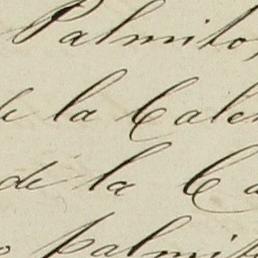 Palmito,
de la Cale
de la Ca
palmit